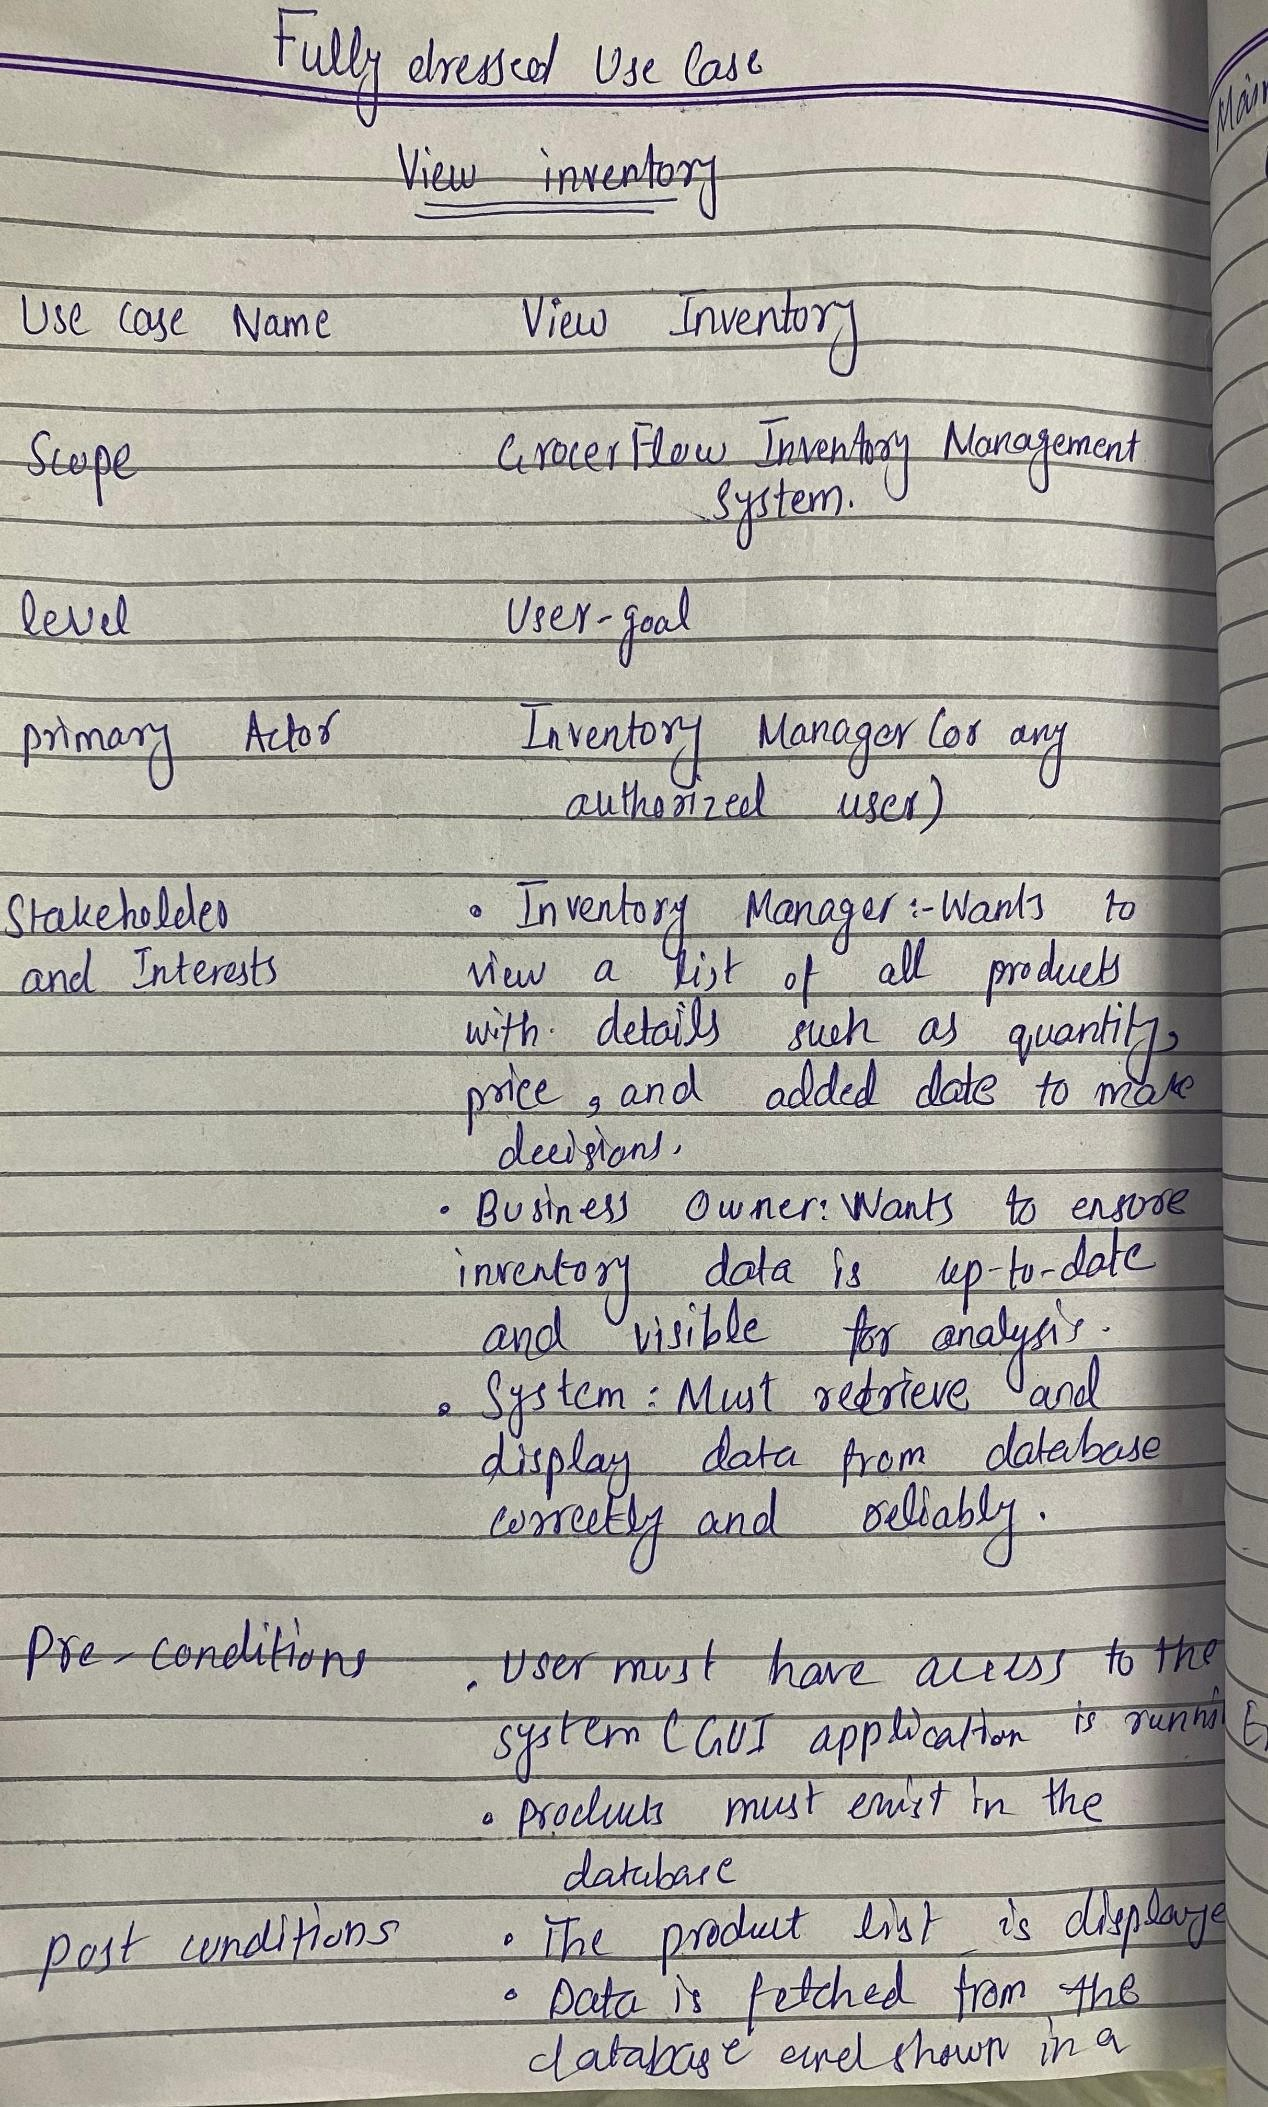 Fully dressed Use Case
View inventory
Use Case Name View Inventory
Scope GrocerFlow Inventory Management
System.
level User-goal
primary Actor Inventory Manager (or any
authorized user)
Stakeholder • Inventory Manager:- Wants to
and Interests view a list of all products
with details such as quantity,
price, and added date to make
decisions.
• Business Owner: Wants to ensure
inventory data is up-to-date
and visible for analysis.
• System: Must retrieve and
display data from database
correctly and reliably.
Pre-conditions • User must have access to the
system (GUI application is runni
• products must exist in the
database
post conditions • The product list is displaye
• Data is fetched from the
database and shown in a